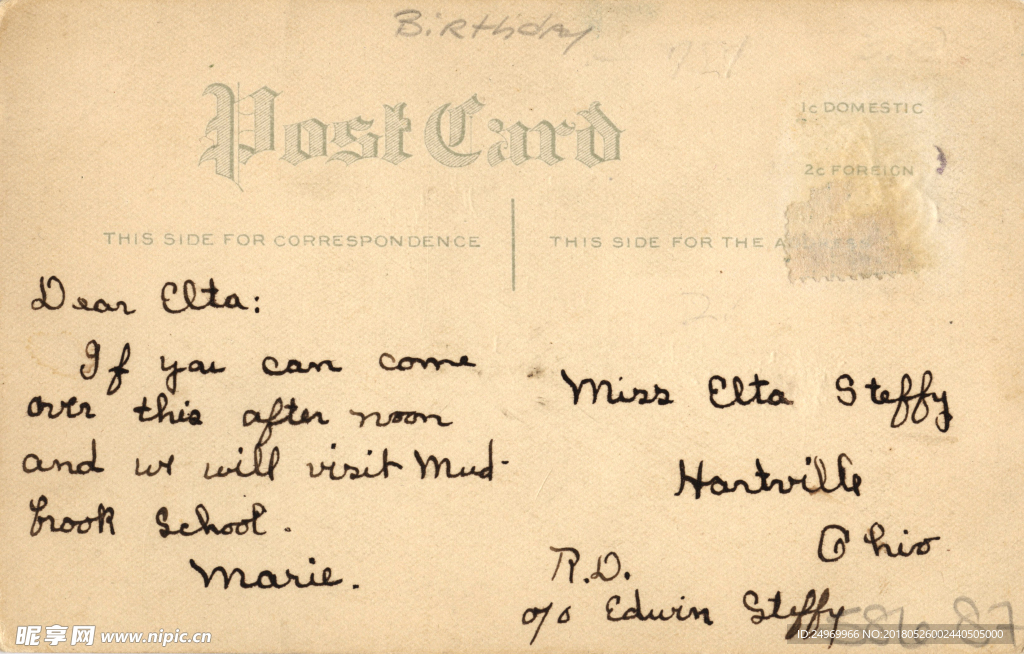 Birthday
Post Card
1c DOMESTIC
2c FOREIGN
THIS SIDE FOR CORRESPONDENCE
THIS SIDE FOR THE
Dear Elta:
If you can come
over this after noon
and we will visit Mud-
brook School.
Marie.
Miss Elta Steffy
Hartville
Ohio
R.D.
o/o Edwin Steffy
昵享网 www.nipic.cn
ID:24969966 NO:20180526002440505000